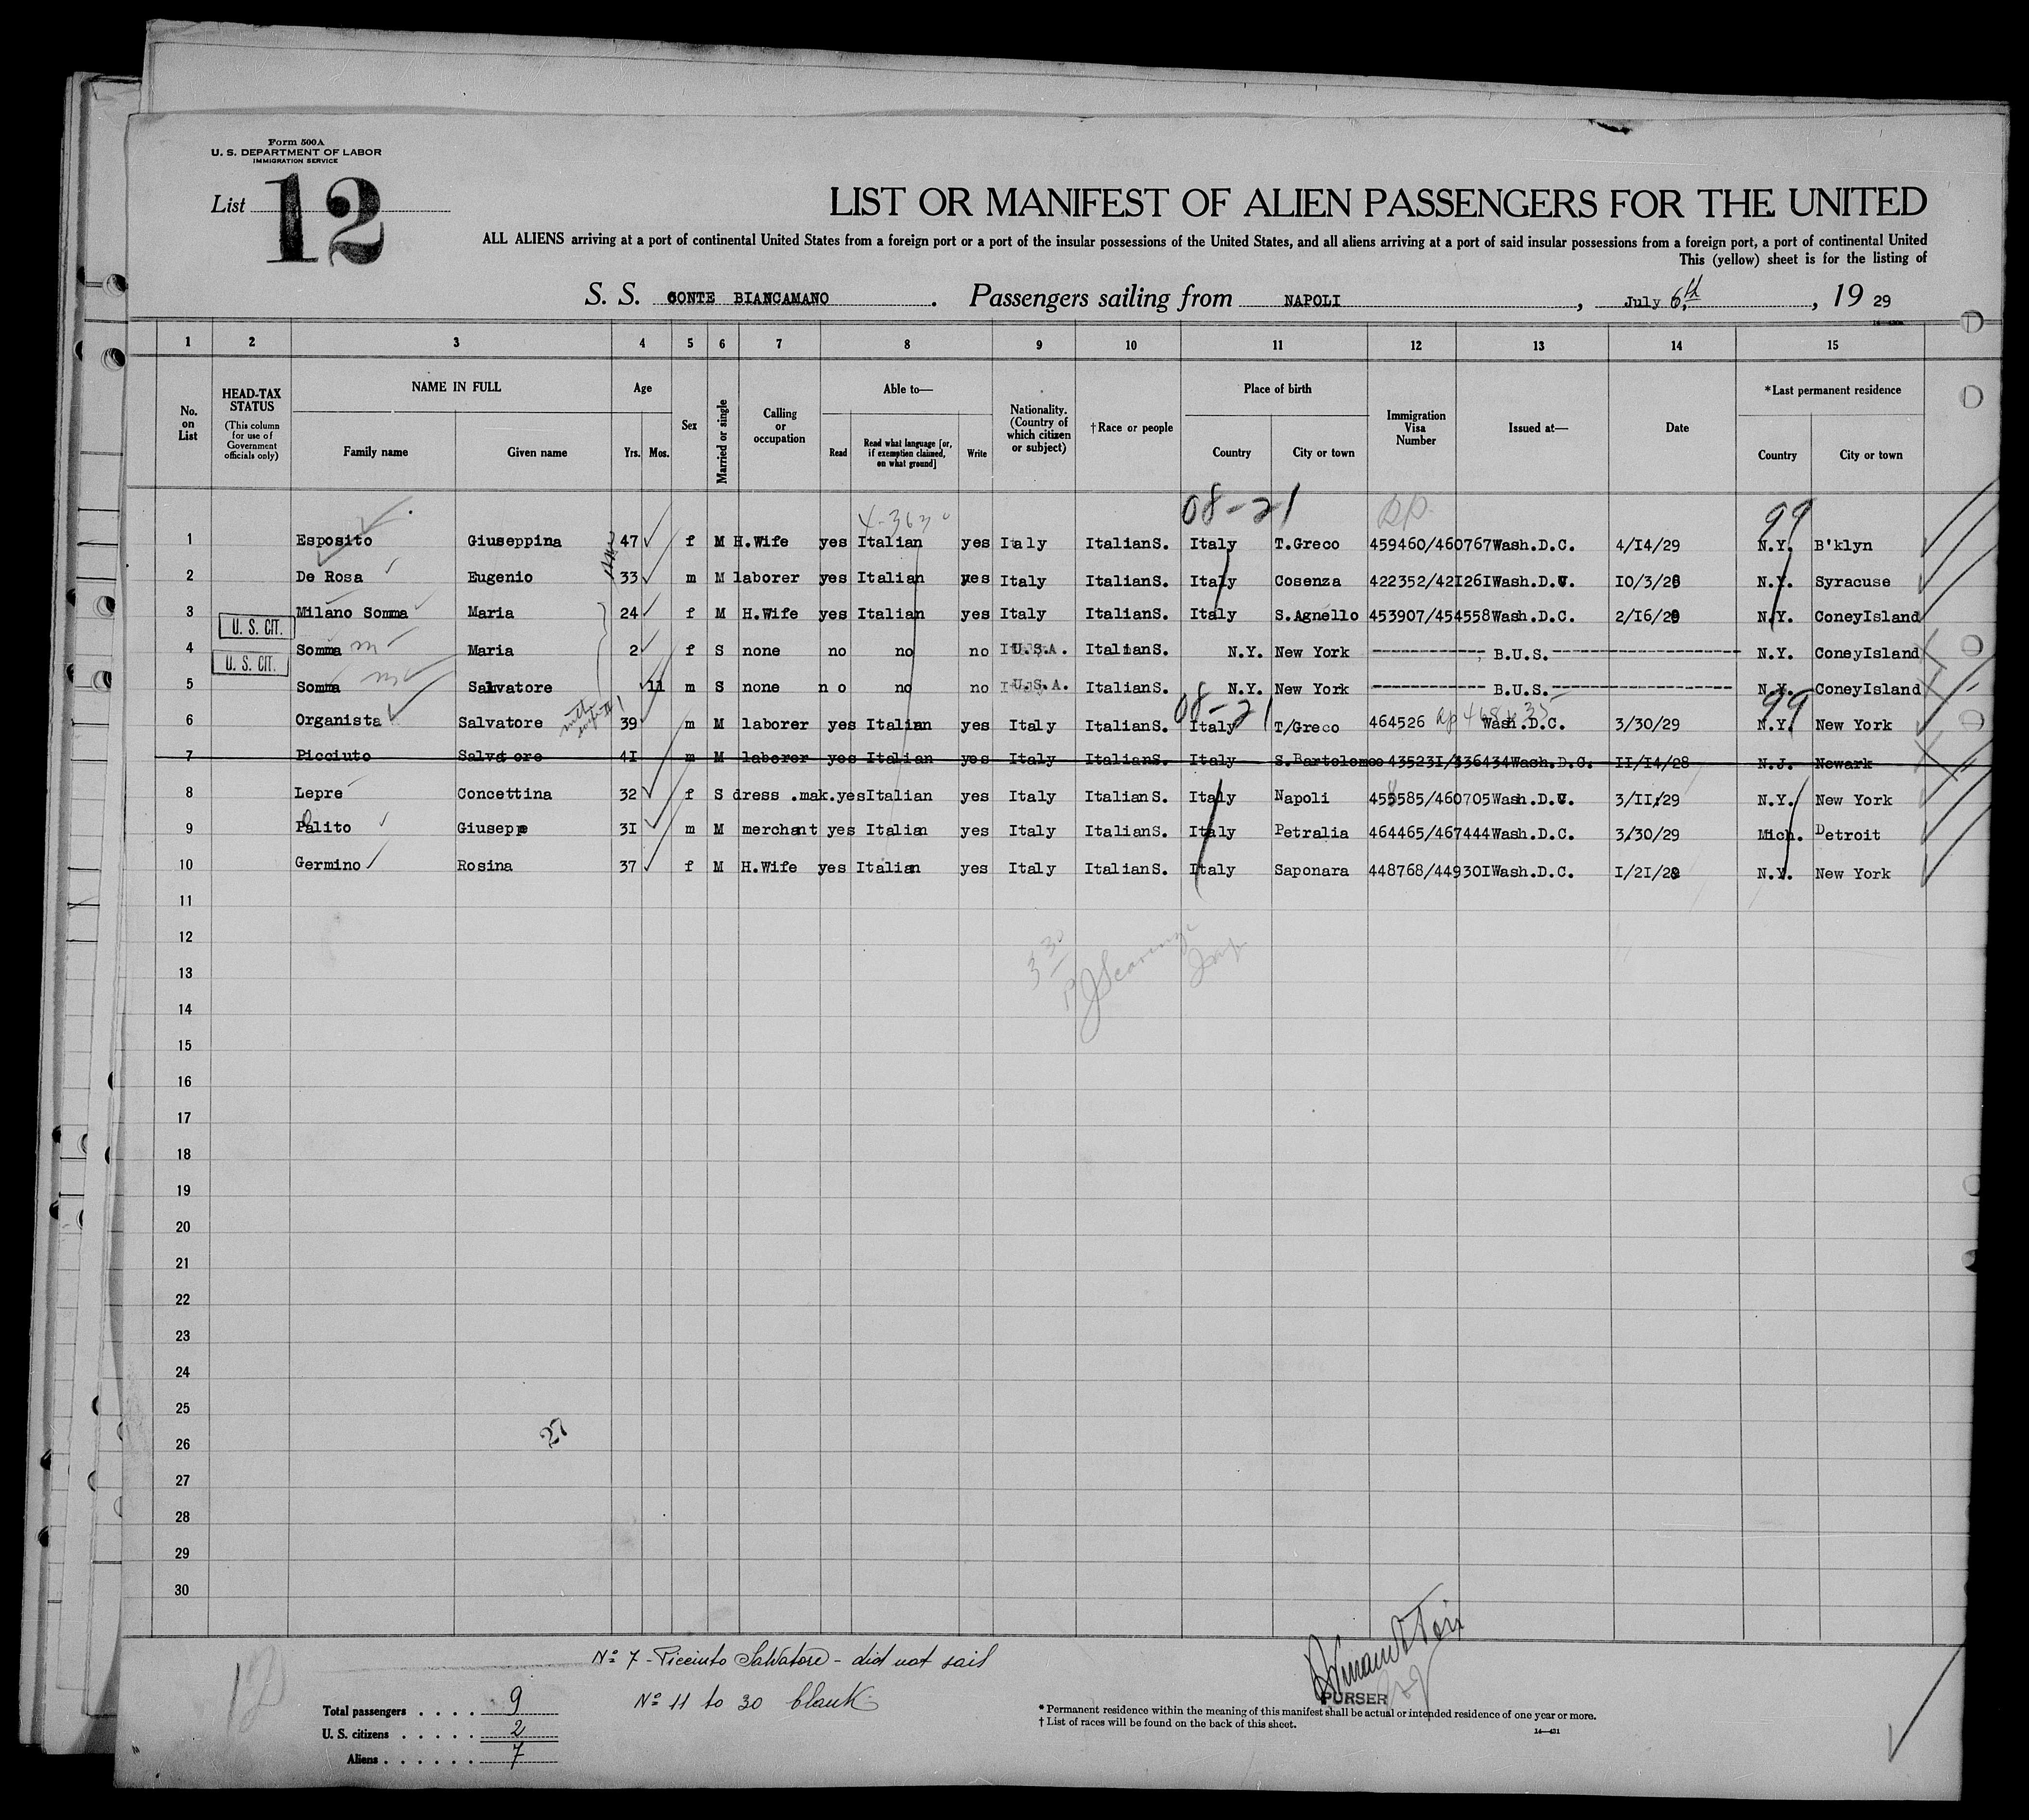 Form 500A
U. S. DEPARTMENT OF LABOR
IMMIGRATION SERVICE
List 12
LIST OR MANIFEST OF ALIEN PASSENGERS FOR THE UNITED
ALL ALIENS arriving at a port of continental United States from a foreign port or a port of the insular possessions of the United States, and all aliens arriving at a port of said insular possessions from a foreign port, a port of continental United
This (yellow) sheet is for the listing of
S. S. CONTE BIANCAMANO. Passengers sailing from NAPOLI, July 6th, 19 29
1 2 3 4 5 6 7 8 9 10 11 12 13 14 15
No. on List
HEAD-TAX STATUS (This column for use of Government officials only)
NAME IN FULL
Family name Given name
Age
Yrs. Mos.
Sex
Married or single
Calling or occupation
Able to—
Read
Read what language [or, if exemption claimed, on what ground]
Write
Nationality. (Country of which citizen or subject)
†Race or people
Place of birth
Country City or town
Immigration Visa Number
Issued at—
Date
*Last permanent residence
Country City or town
08-21 99
1 Esposito Giuseppina 47 f M H.Wife yes Italian yes Italy ItalianS. Italy T.Greco 459460/460767 Wash.D.C. 4/14/29 N.Y. B'klyn
2 De Rosa Eugenio 33 m M laborer yes Italian yes Italy ItalianS. Italy Cosenza 422352/42I26I Wash.D.C. I0/3/28 N.Y. Syracuse
3 Milano Somma Maria 24 f M H.Wife yes Italian yes Italy ItalianS. Italy S.Agnello 453907/454558 Wash.D.C. 2/16/29 N.Y. ConeyIsland
U. S. CIT.
4 Somma Maria 2 f S none no no no U.S.A. ItalianS. N.Y. New York B.U.S. N.Y. ConeyIsland
U. S. CIT.
5 Somma Salvatore 11 m S none n o no no U.S.A. ItalianS. N.Y. New York B.U.S. N.Y. ConeyIsland
08-21 99
6 Organista Salvatore 39 m M laborer yes Italian yes Italy ItalianS. Italy T/Greco 464526 Wash.D.C. 3/30/29 N.Y. New York
7 Picciuto Salvatore 4I m M laborer yes Italian yes Italy ItalianS. Italy S.Bartolomeo 43523I/436434 Wash.D.C. II/I4/28 N.J. Newark
8 Lepre Concettina 32 f S dress .mak. yes Italian yes Italy ItalianS. Italy Napoli 458585/460705 Wash.D.C. 3/II/29 N.Y. New York
9 Palito Giuseppe 3I m M merchant yes Italian yes Italy ItalianS. Italy Petralia 464465/467444 Wash.D.C. 3/30/29 Mich. Detroit
10 Germino Rosina 37 f M H.Wife yes Italian yes Italy ItalianS. Italy Saponara 448768/44930I Wash.D.C. I/2I/29 N.Y. New York
11
12
13
14
15
16
17
18
19
20
21
22
23
24
25
26
27
28
29
30
27
Nº 7 - Picciuto Salvatore - did not sail
Nº 11 to 30 blank
Total passengers . . . . 9
U. S. citizens . . . . . 2
Aliens . . . . . . 7
PURSER
* Permanent residence within the meaning of this manifest shall be actual or intended residence of one year or more.
† List of races will be found on the back of this sheet.
14—431